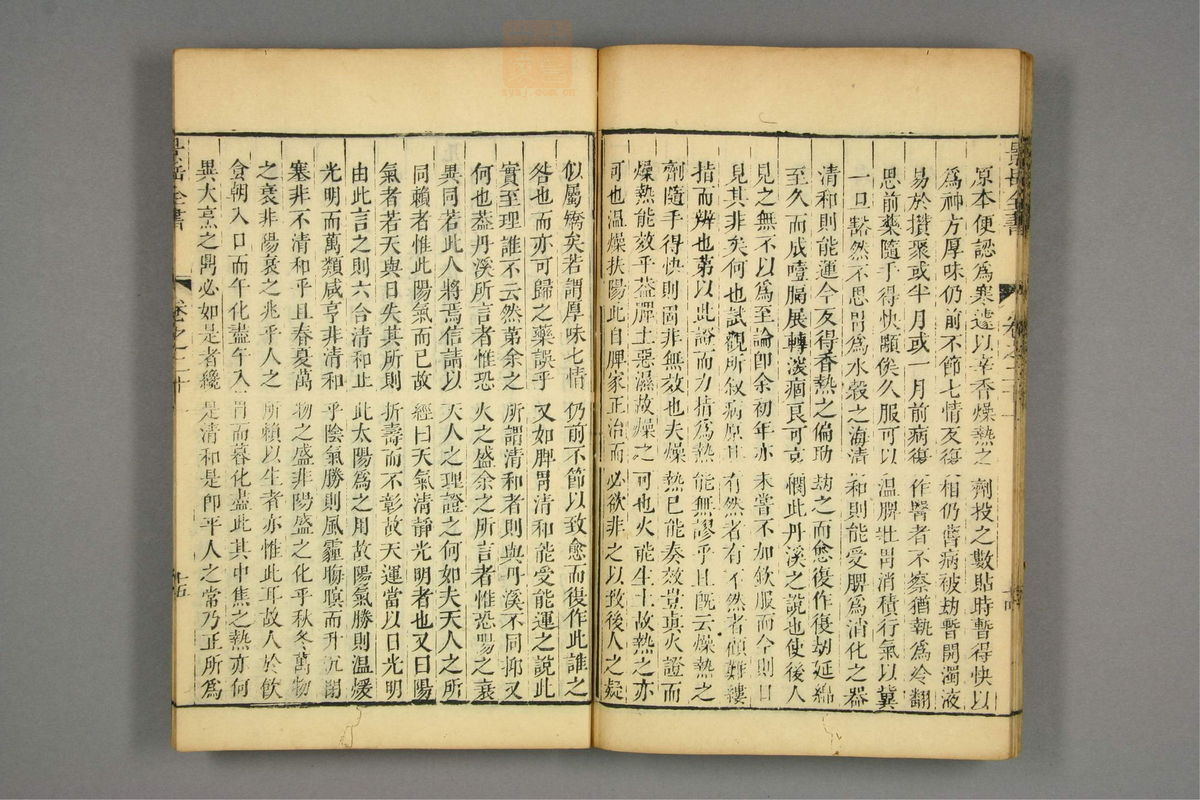 景岳全書
原本便認為寒遽以辛香燥熱之劑投之數貼時暫得快以
為神方厚味仍前不節七情反復相仍舊病被劫暫開濁液
易於攢聚或半月或一月前病復作醫者不察猶執為冷翻
思前藥隨手得快顒俟久服可以溫脾壯胃消積行氣以冀
一旦豁然不思胃為水穀之海清和則能受脾為消化之器
清和則能運今反得香熱之偏助劫之而愈復作復劫延綿
至久而成噎膈展轉深痼良可哀憫此丹溪之說也使後人
見之無不以為至論即余初年亦未嘗不加欽服而今則日
見其非矣何也試觀所敘病原其有然者有不然者顧難縷
指而辨也第以此證而力指為熱能無謬乎且既云燥熱之
劑隨手得快則固非無效也夫燥熱已能奏效豈真火證而
燥熱能效乎蓋脾土惡濕故燥之可也火能生土故熱之亦
可也溫燥扶陽此自脾家正治而必欲非之以致後人之疑
似屬矯矣若謂厚味七情仍前不節以致愈而復作此誰之
咎也而亦可歸之藥誤乎又如脾胃清和能受能運之說此
實至理誰不云然第余之所謂清和者則與丹溪不同抑又
何也蓋丹溪所言者惟恐火之盛余之所言者惟恐陽之衰
異同若此人將焉信請以天人之理證之何如夫天人之所
同賴者惟此陽氣而已故經曰天氣清靜光明者也又曰陽
氣者若天與日失其所則折壽而不彰故天運當以日光明
由此言之則六合清和止此太陽為之用故陽氣勝則溫煖
光明而萬類咸亨非清和乎陰氣勝則風霾晦暝而升沉閉
塞非不清和乎且春夏萬物之盛非陽盛之化乎秋冬萬物
之衰非陽衰之兆乎人之所賴以生者亦惟此耳故人於飲
食朝入口而午化盡午入胃而暮化盡此其中焦之熱亦何
異大烹之鼎必如是者纔是清和是即平人之常乃正所為
景岳全書
卷之二十一